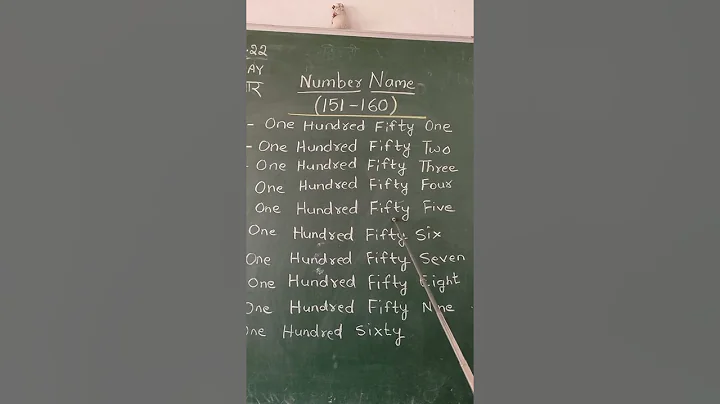 .22
AY
ार
Number Name
(151-160)
- One Hundred Fifty One
- One Hundred Fifty Two
- One Hundred Fifty Three
One Hundred Fifty Four
One Hundred Fifty Five
One Hundred Fifty Six
One Hundred Fifty Seven
One Hundred Fifty Eight
One Hundred Fifty Nine
One Hundred Sixty